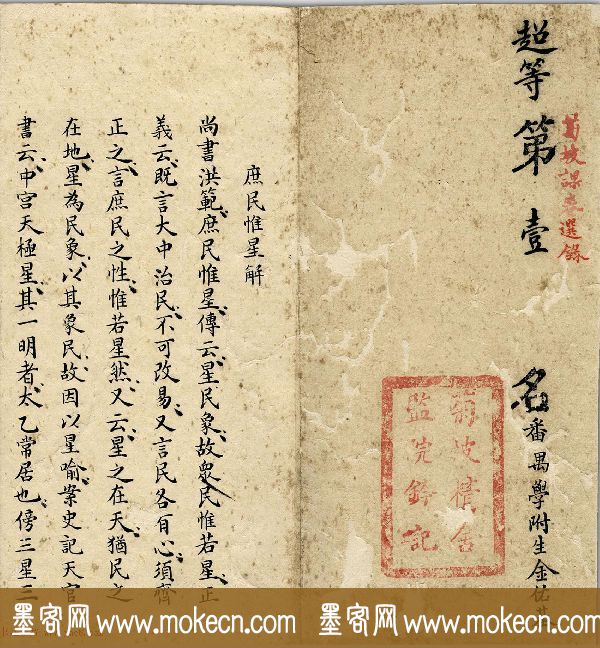 超等第壹名番禺學附生金佑
菊坡課卷選錄
菊坡精舍
監院鈐記
庶民惟星解
尚書洪範庶民惟星傳云星民象故衆民惟若星正
義云既言大中治民不可改易又言民各有心須齊
正之言庶民之性惟若星然又云星之在天猶民之
在地星為民象以其象民故因以星喻案史記天官
書云中宮天極星其一明者太乙常居也傍三星三
墨客网 www.mokecn.com 墨客网 www.mokecn.com